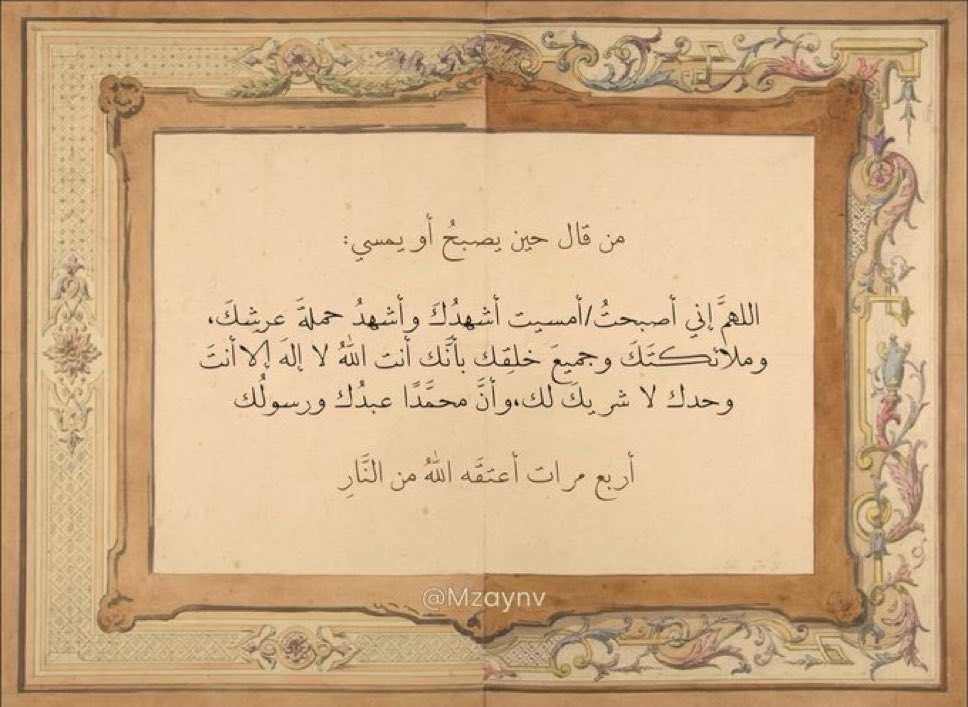 من قال حين يصبحُ أو يمسي:
اللهمَّ إني أصبحتُ/أمسيت أشهدُكَ وأشهدُ حملةَ عرشِكَ،
وملائكتَكَ وجميعَ خلقِك بأنَّك أنت اللهُ لا إلهَ إلا أنتَ
وحدك لا شريكَ لك،وأنَّ محمَّدًا عبدُك ورسولُك
أربع مرات أعتقَه اللهُ من النَّارِ
@Mzaynv